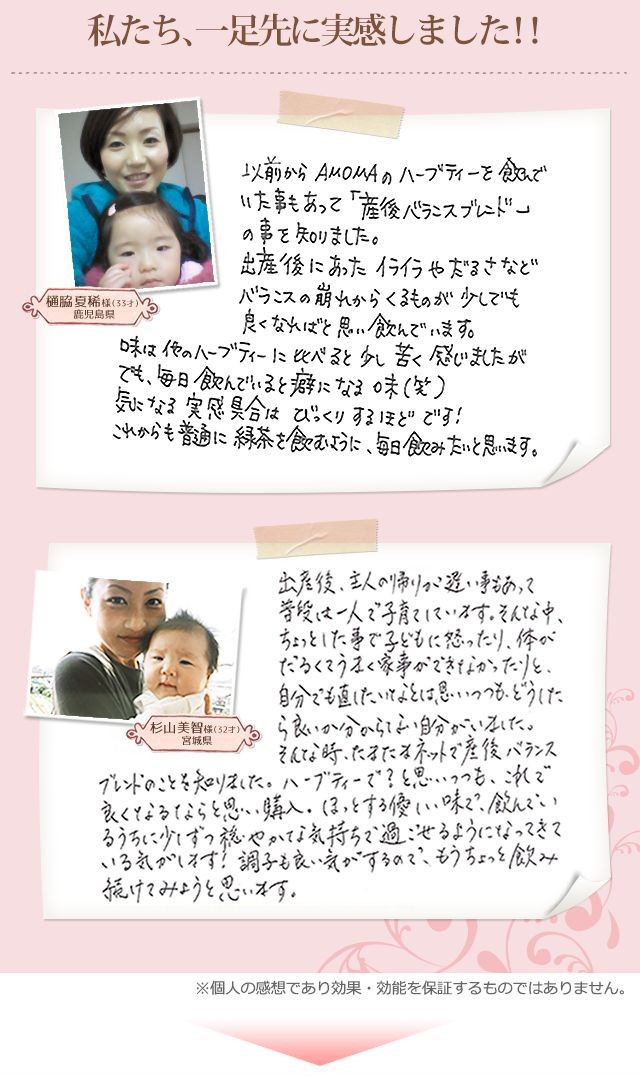 私たち、一足先に実感しました!!
以前から AMOMAの ハーブティーを 飲んで
いた事もあって「産後バランスブレンドー」
の事を知りました。
出産後にあった イライラ や だるさなど
バランスの崩れからくるものが 少しでも
良くなればと思い 飲んでいます。
味は 他のハーブティーに 比べると 少し 苦く 感じましたが
でも、毎日 飲んでいると癖になる 味(笑)
気になる 実感具合は びっくり するほど です!
これからも普通に 緑茶を飲むように、毎日飲みたいと思います。
樋脇 夏稀様(33才)
鹿児島県
出産後、主人の帰りが遅い事もあって
普段は一人で子育てしています。そんな中、
ちょっとした事で子どもに怒ったり、体が
だるくてうまく家事ができなかったりと、
自分でも直したいなとは思いつつも、どうした
ら良いか分からない自分がいました。
そんな時、たまたまネットで産後バランス
ブレンドのことを知りました。ハーブティーで?と思いつつも、これで
良くなるならと思い購入。ほっとする優しい味で、飲んでい
るうちに少しずつ穏やかな気持ちで過ごせるようになってきて
いる気がします!調子も良い気がするので、もうちょっと飲み
続けてみようと思います。
杉山 美智様(32才)
宮城県
※個人の感想であり効果・効能を保証するものではありません。